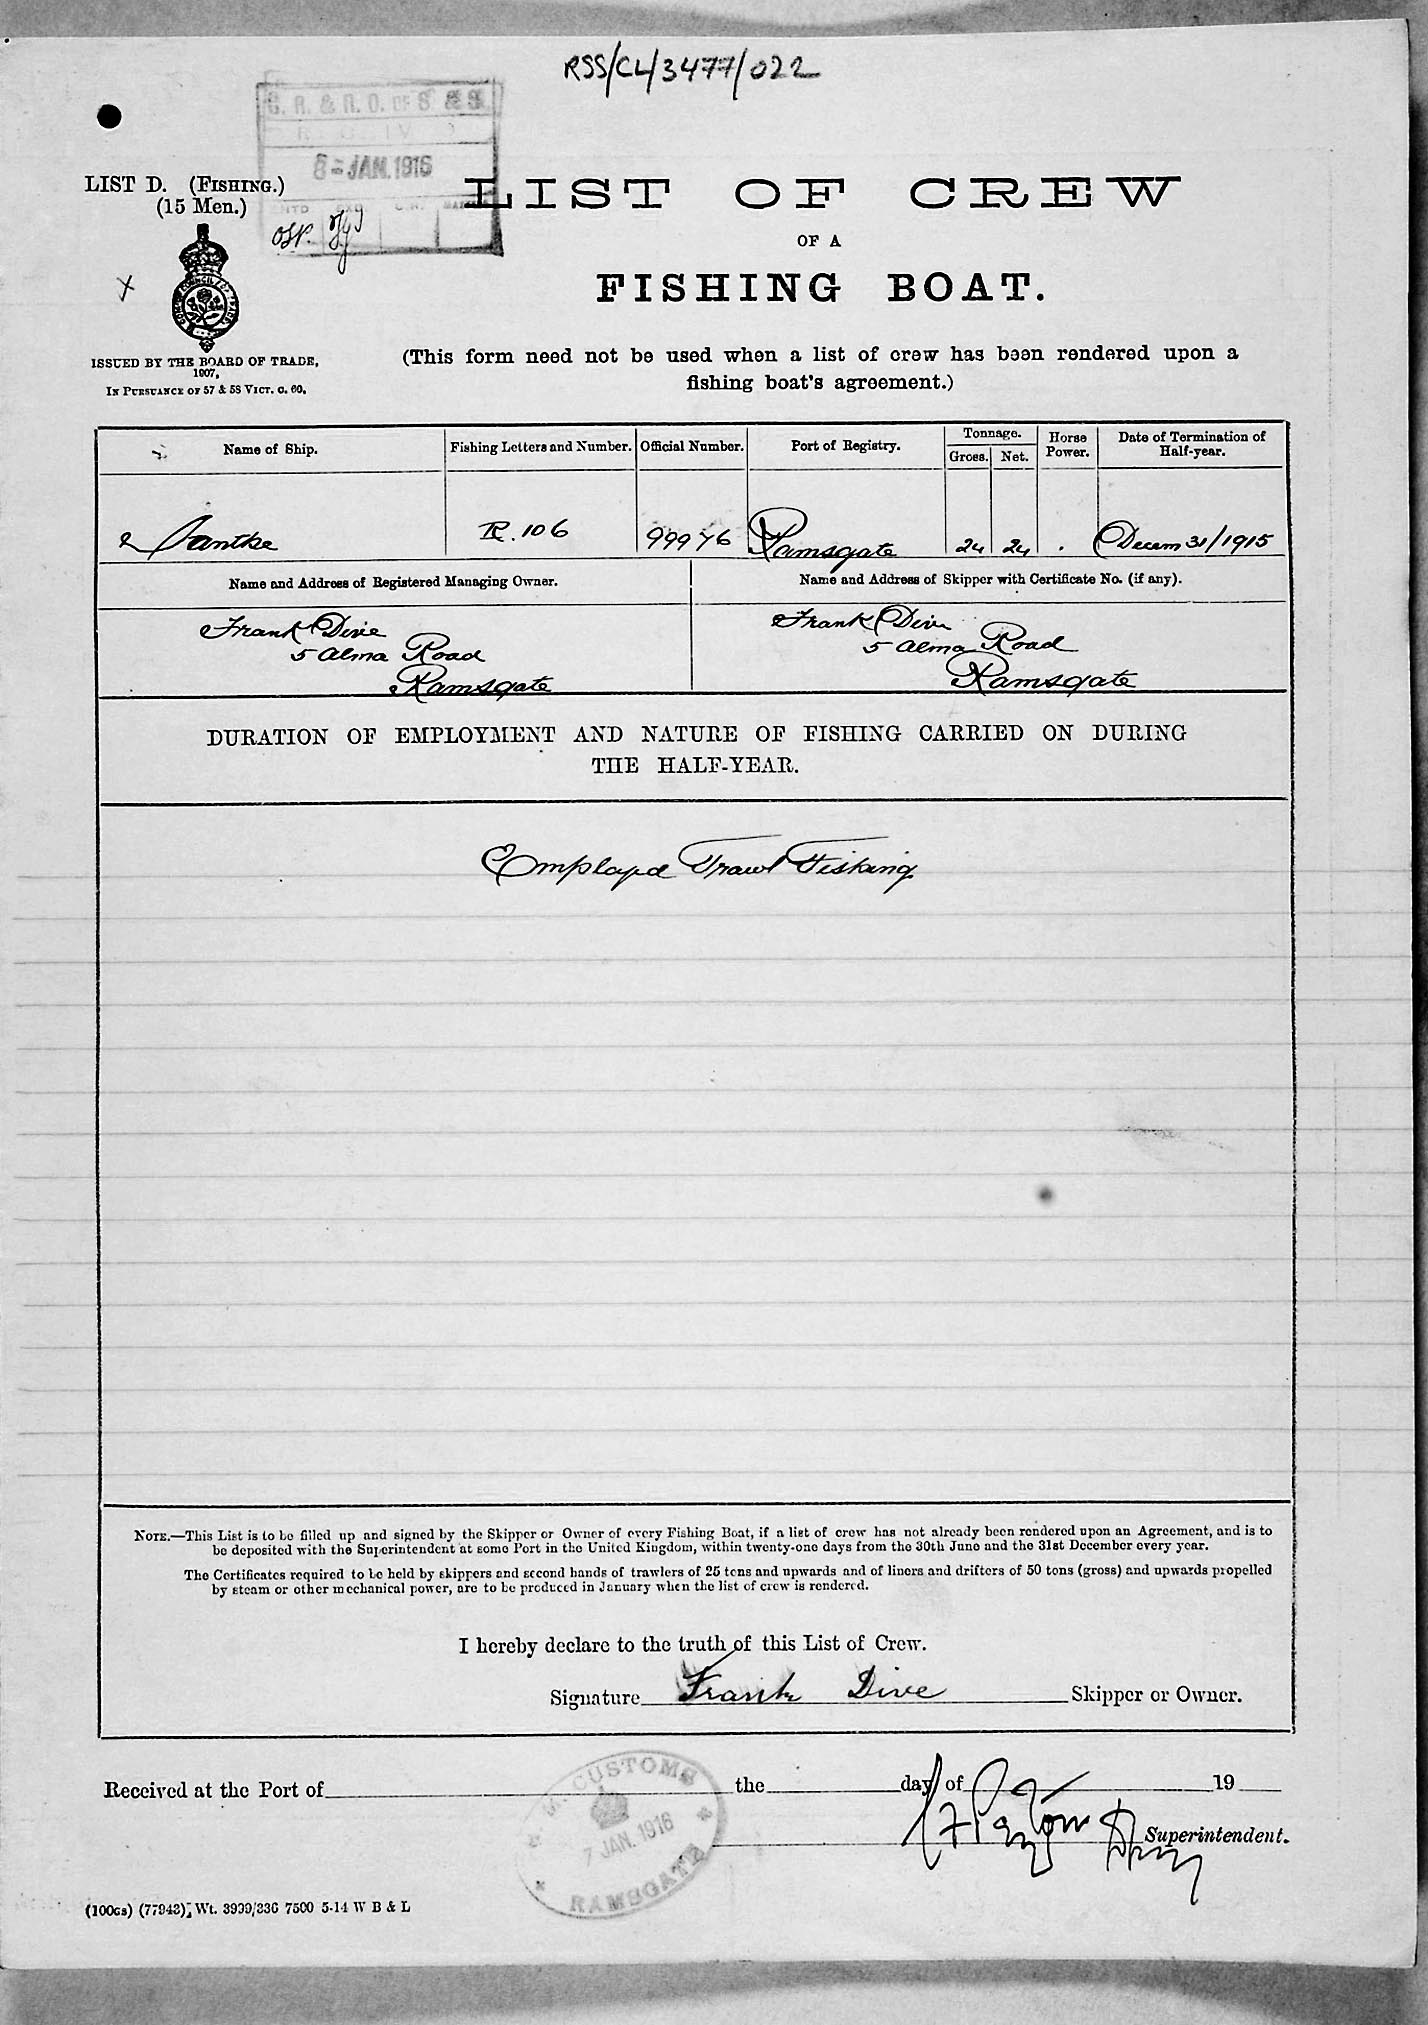 RSS/CL/3477/022
8 - JAN. 1916
LIST D. (FISHING.)
(15 Men.)
LIST OF CREW
OF A
FISHING BOAT.
ISSUED BY THE BOARD OF TRADE,
1907,
IN PURSUANCE OF 57 & 58 VICT. C. 60.
(This form need not be used when a list of crew has been rendered upon a
fishing boat's agreement.)
Name of Ship. Fishing Letters and Number. Official Number. Port of Registry. Tonnage. Gross. Net. Horse Power. Date of Termination of Half-year.
R. 106 99976 Ramsgate 24 24 Decem 31/1915
Name and Address of Registered Managing Owner. Name and Address of Skipper with Certificate No. (if any).
Frank Dive Frank Dive
5 Alma Road 5 Alma Road
Ramsgate Ramsgate
DURATION OF EMPLOYMENT AND NATURE OF FISHING CARRIED ON DURING
THE HALF-YEAR.
Employd Trawl Fishing
NOTE.—This List is to be filled up and signed by the Skipper or Owner of every Fishing Boat, if a list of crew has not already been rendered upon an Agreement, and is to
be deposited with the Superintendent at some Port in the United Kingdom, within twenty-one days from the 30th June and the 31st December every year.
The Certificates required to be held by skippers and second hands of trawlers of 25 tons and upwards and of liners and drifters of 50 tons (gross) and upwards propelled
by steam or other mechanical power, are to be produced in January when the list of crew is rendered.
I hereby declare to the truth of this List of Crew.
Signature Frank Dive Skipper or Owner.
Received at the Port of the day of 19
Superintendent.
H. M. CUSTOMS
7 JAN. 1916
RAMSGATE
(100GS) (77943) Wt. 3909/336 7500 5-14 W B & L